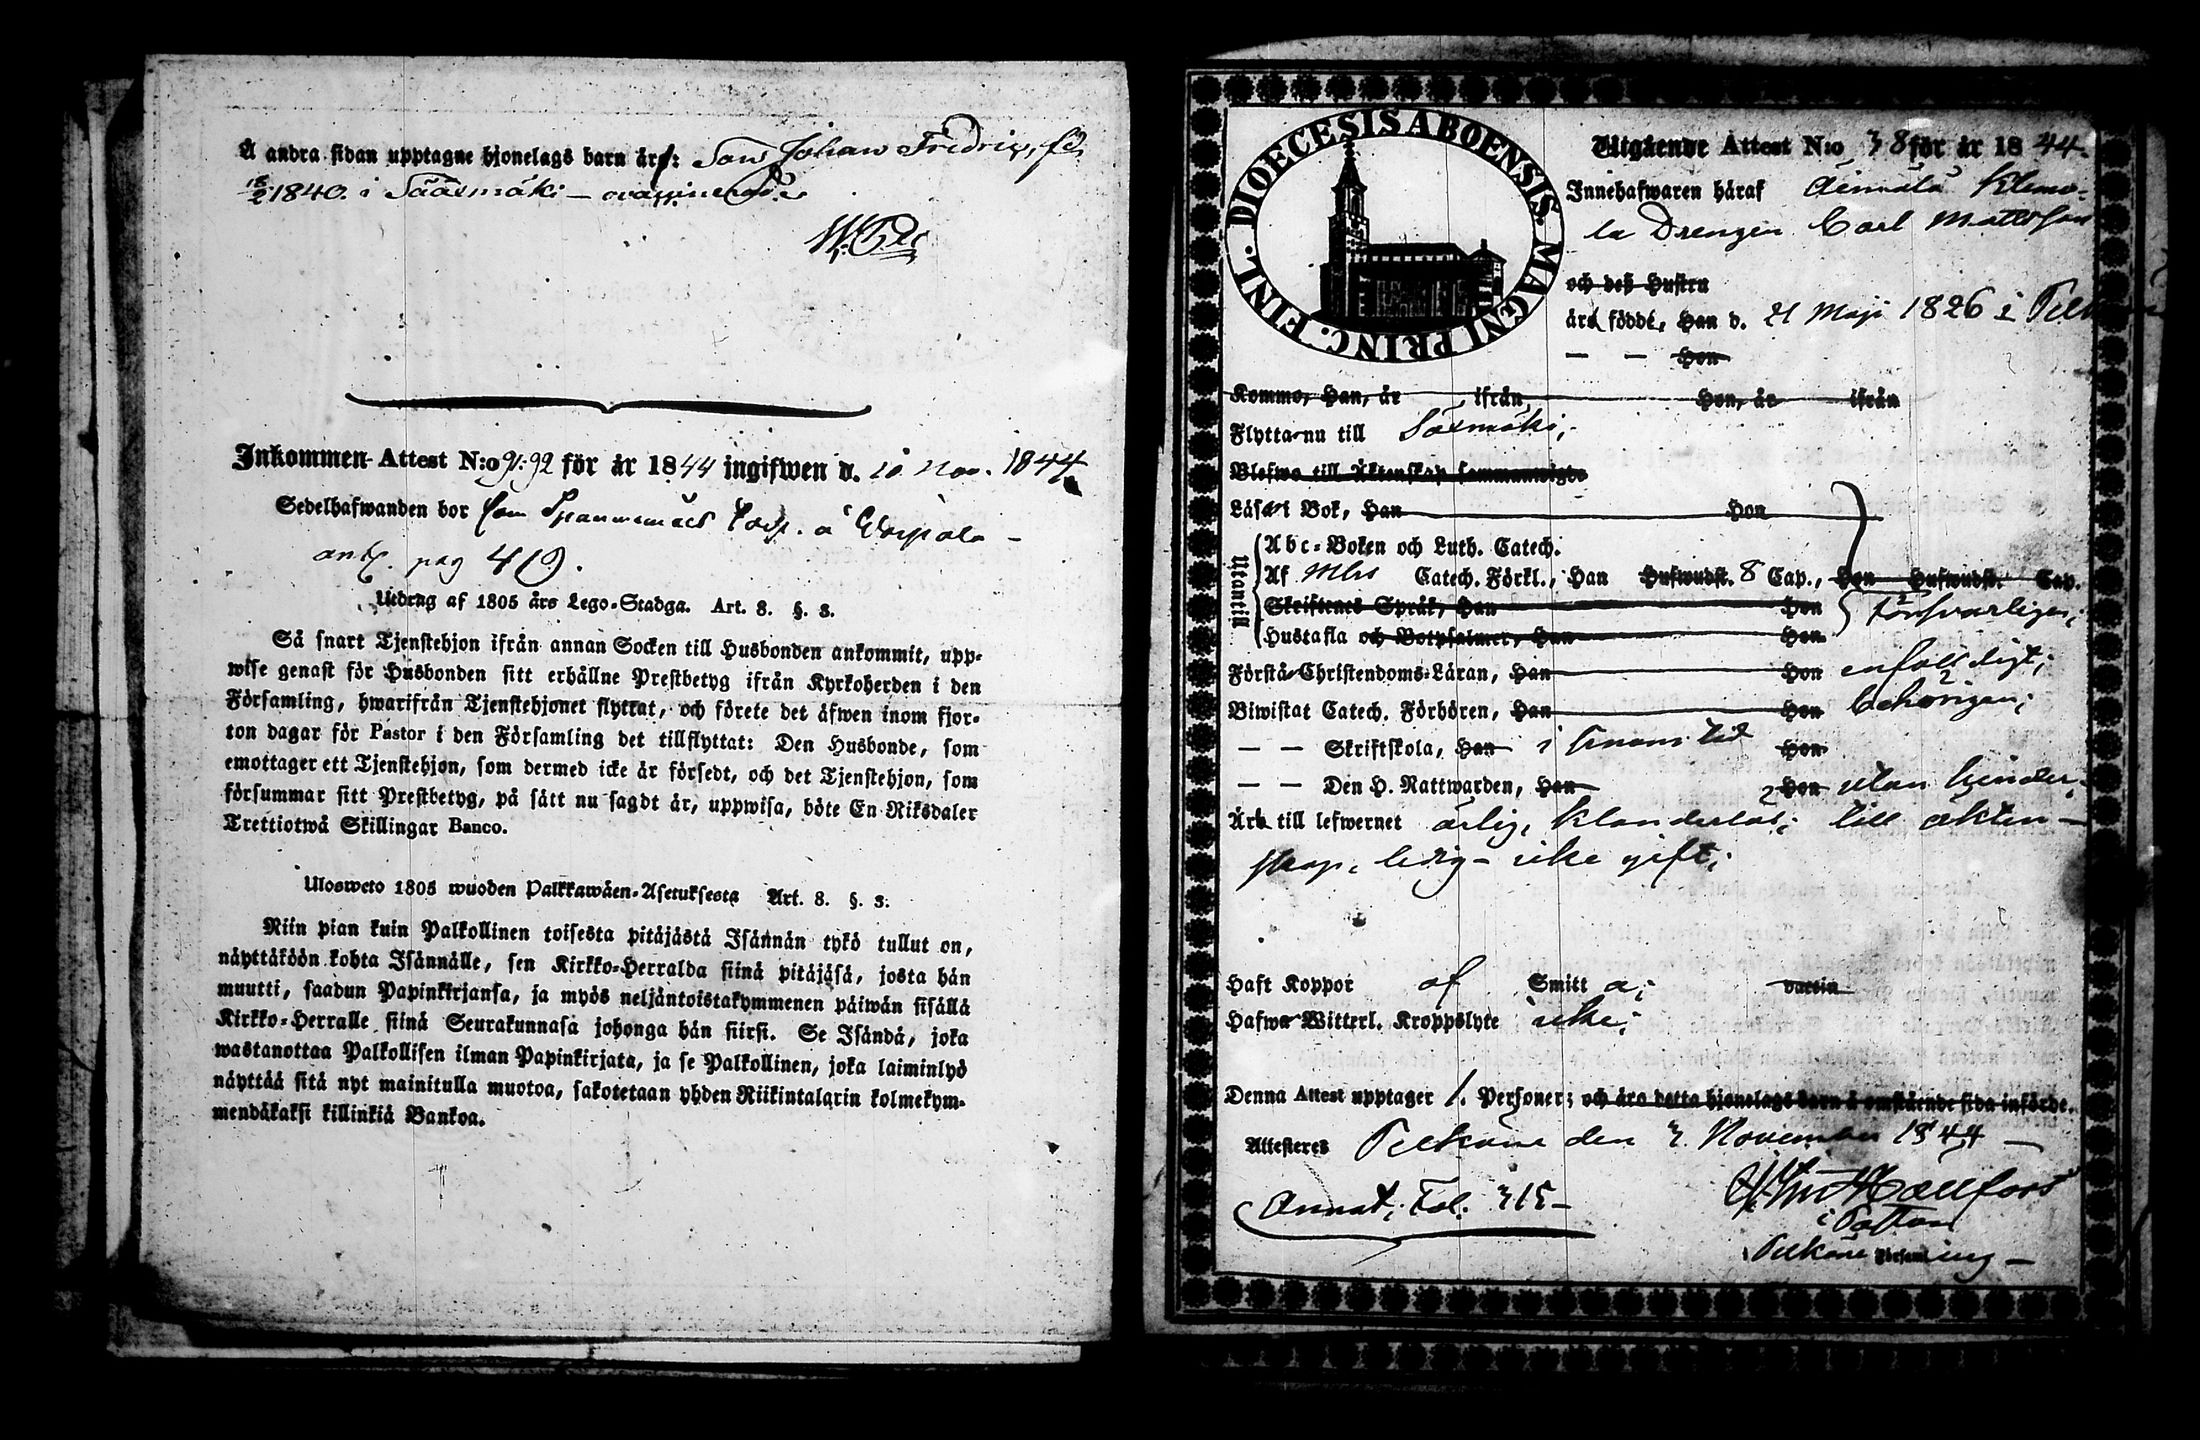 Å andra sidan upptagne hjonelags barn äro: Son Johan Fredric, född
18/2 1840. i Sääxmäki – ovaccinerad
Inkommen Attest N:o 91:92 för år 1844 ingifwen d. 10 Nov. 1844
Sedelhafwanden bor som
pag 419.
Utdrag af 1805 års Lego-Stadga. Art. 8. §. 3.
Så snart Tjenstehjon ifrån annan Socken till Husbonden ankommit, upp-
wise genast för Husbonden sitt erhållne Prestbetyg ifrån Kyrkoherden i den
Församling, hwarifrån Tjenstehjonet flyttat, och förete det äfwen inom fjor-
ton dagar för Pastor i den Församling det tillflyttat: Den Husbonde, som
emottager ett Tjenstehjon, som dermed icke är försedt, och det Tjenstehjon, som
försummar sitt Prestbetyg, på sätt nu sagdt är, uppwisa, böte En Riksdaler
Trettiotwå Skillingar Banco.
Ulosweto 1805 wuoden Palkkawäen-Asetuksesta Art. 8. §. 3.
Niin pian kuin Palkollinen toisesta pitäjästä Isännän tykö tullut on,
näyttäköön kohta Isännälle, sen Kirkko-Herralda siinä pitäjäsä, josta hän
muutti, saadun Papinkirjansa, ja myös neljäntoistakymmenen päiwän sisällä
Kirkko-Herralle siinä Seurakunnasa johonga hän siirsi. Se Isändä, joka
wastanottaa Palkollisen ilman Papinkirjata, ja se Palkollinen, joka laiminlyö
näyttää sitä nyt mainitulla muotoa, sakotetaan yhden Riikintalarin kolmekym-
mendäkaksi killinkiä Bankoa.
DIOECESIS ABOENSIS MAGNI PRINC. FINL.
Utgående Attest N:o 38 för år 1844.
Innehafwaren häraf Äimälä Klemo-
la Drengen Carl Mattsson
och deß Hustru
äro födde, Han d. 21 Maji 1826 i
— — Hon
Kommo, Han, år ifrån Hon, år ifrån
Flytta nu till Säxmäki;
Blefwo till Äktenskap sammanwigde
Läsa i Bok, Han Hon
Utantill
Abc-Boken och Luth. Catech.
Af Mbs Catech. Förkl., Han Hufwudst. 8 Cap., Hon Hufwudst. Cap.
Skriftenes Språk, Han Hon försvarligen;
Hustafla och Botpsalmer, Han Hon
Förstå Christendoms-Läran, Han Hon enfaldigt;
Biwistat Catech. Förhören, Han Hon behörigen;
— — Skriftskola, Han i sinom tid Hon
— — Den H. Nattwarden, Han Hon utan hinder;
Äro till lefwernet ärlig, klanderlös; till ækten-
skap, ledig – icke gift;
Haft Koppor af Smitta; vaccin
Hafwa Witterl. Kroppslyte icke;
Denna Attest upptager 1. Personer; och äro detta hjonelags barn å omstående sida införde.
Attesteres Pelkäne den 7. November 1844 —
Annot. Fol. 315 –
Hällfors
i Pastors
Pelkäne Församling —